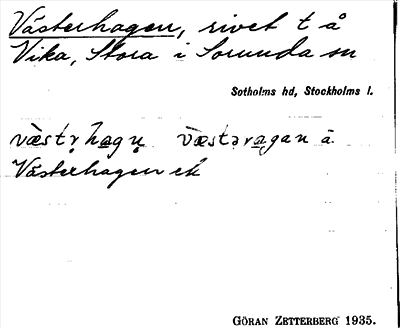 Västerhagen, rivet t å
Vika, Stora i Sorunda sn
Sotholms hd, Stockholms l.
væstr̥hagn̥ væstəragan ä.
Västerhagen ek
GÖRAN ZETTERBERG 1935.